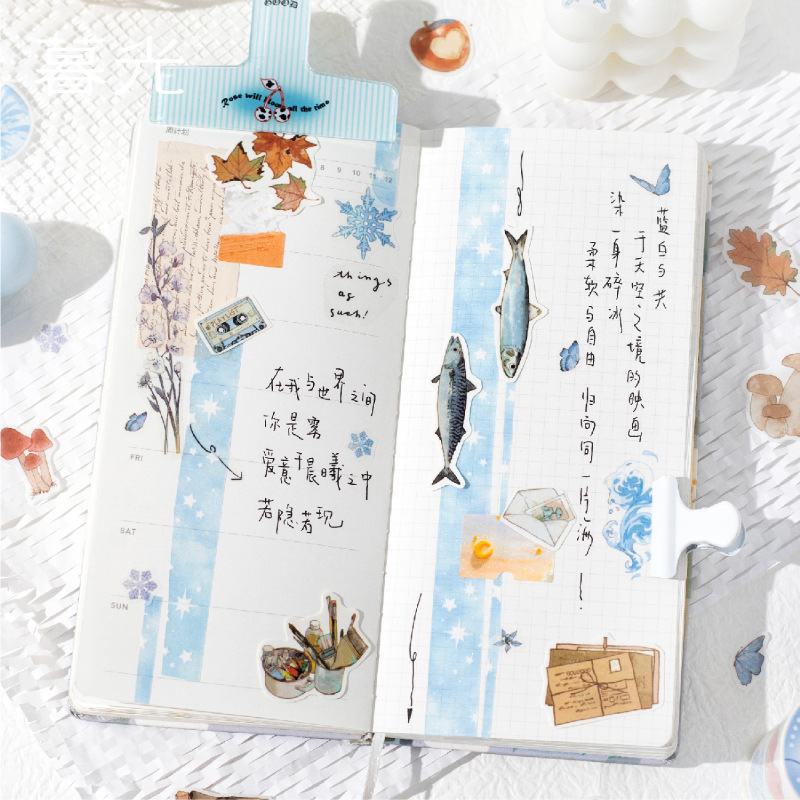 暮光
Rose will bloom all the time
周计划
8 9 10 11 12
things
as
such!
PLAYLIST
在我与世界之间
你是雾
爱意于晨曦之中
若隐若现
FRI
SAT
SUN
蓝白与共
于天空之境的映画
染一身碎冰
柔软与自由 归向同一片海